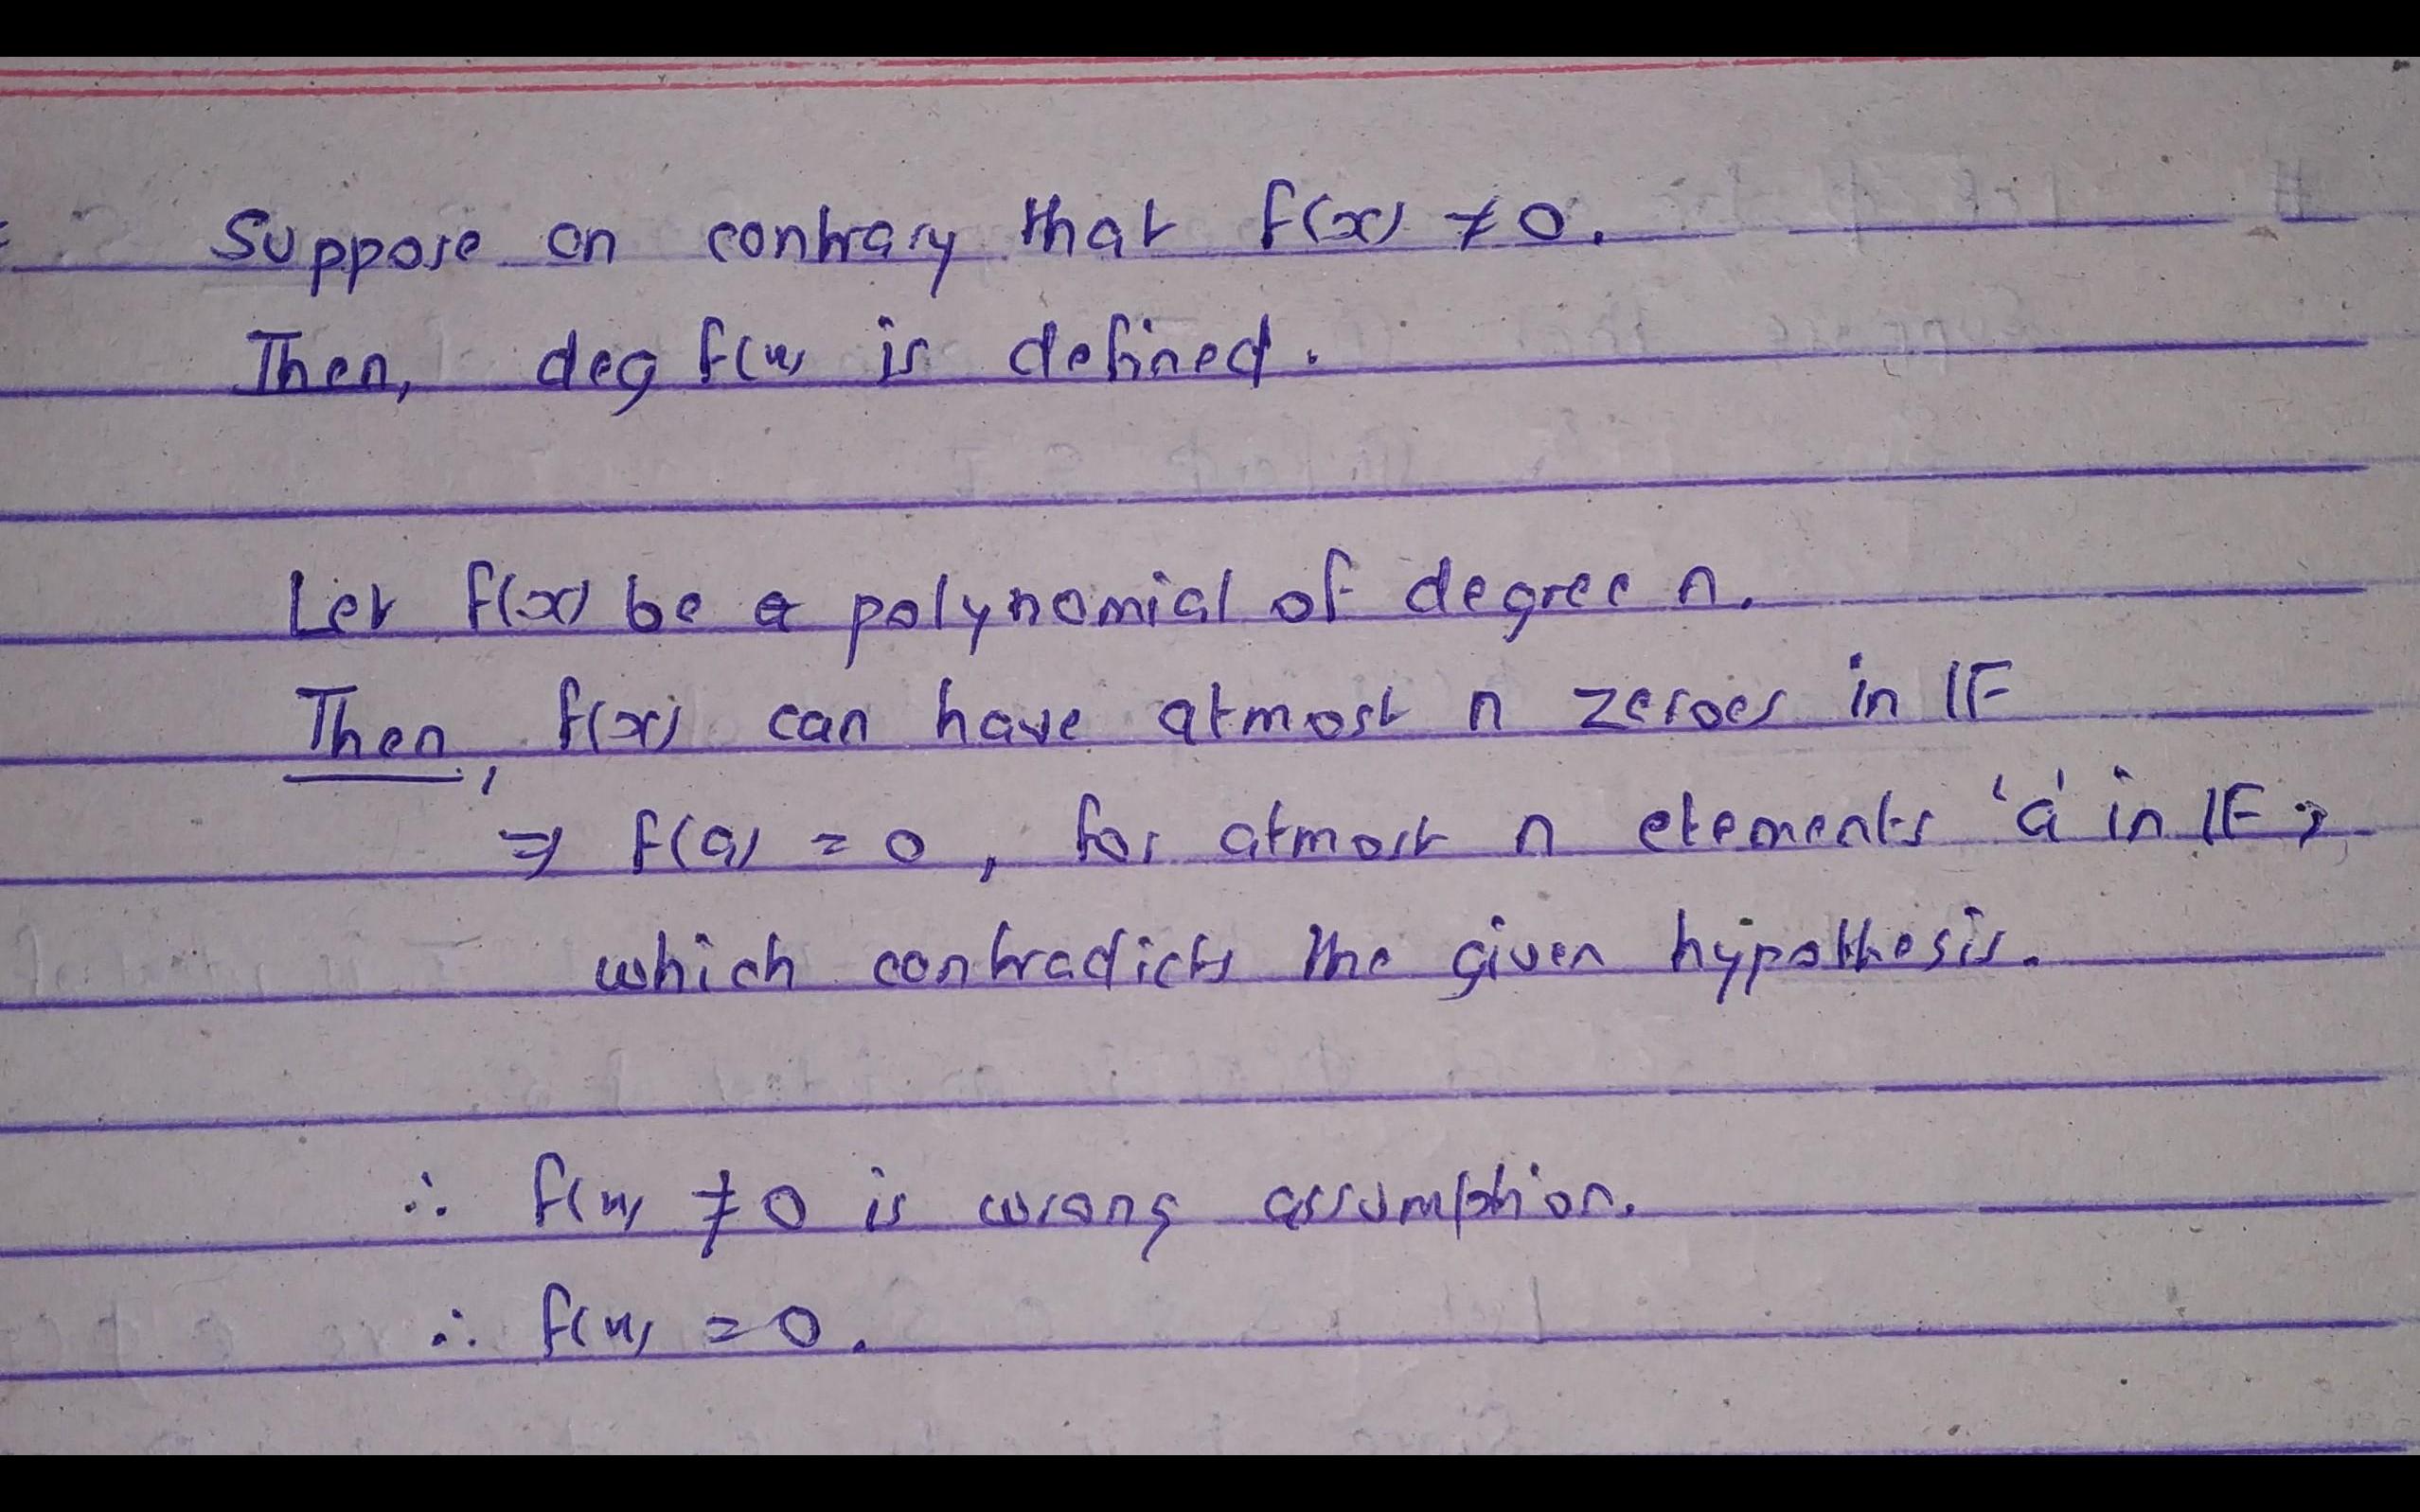 Suppose on contrary that f(x) ≠ 0.
Then, deg f(x) is defined.
Let f(x) be a polynomial of degree n.
Then, f(x) can have atmost n zeroes in F
⇒ f(a) = 0, for atmost n elements 'a' in F,
which contradicts the given hypothesis.
∴ f(x) ≠ 0 is wrong assumption.
∴ f(x) = 0.